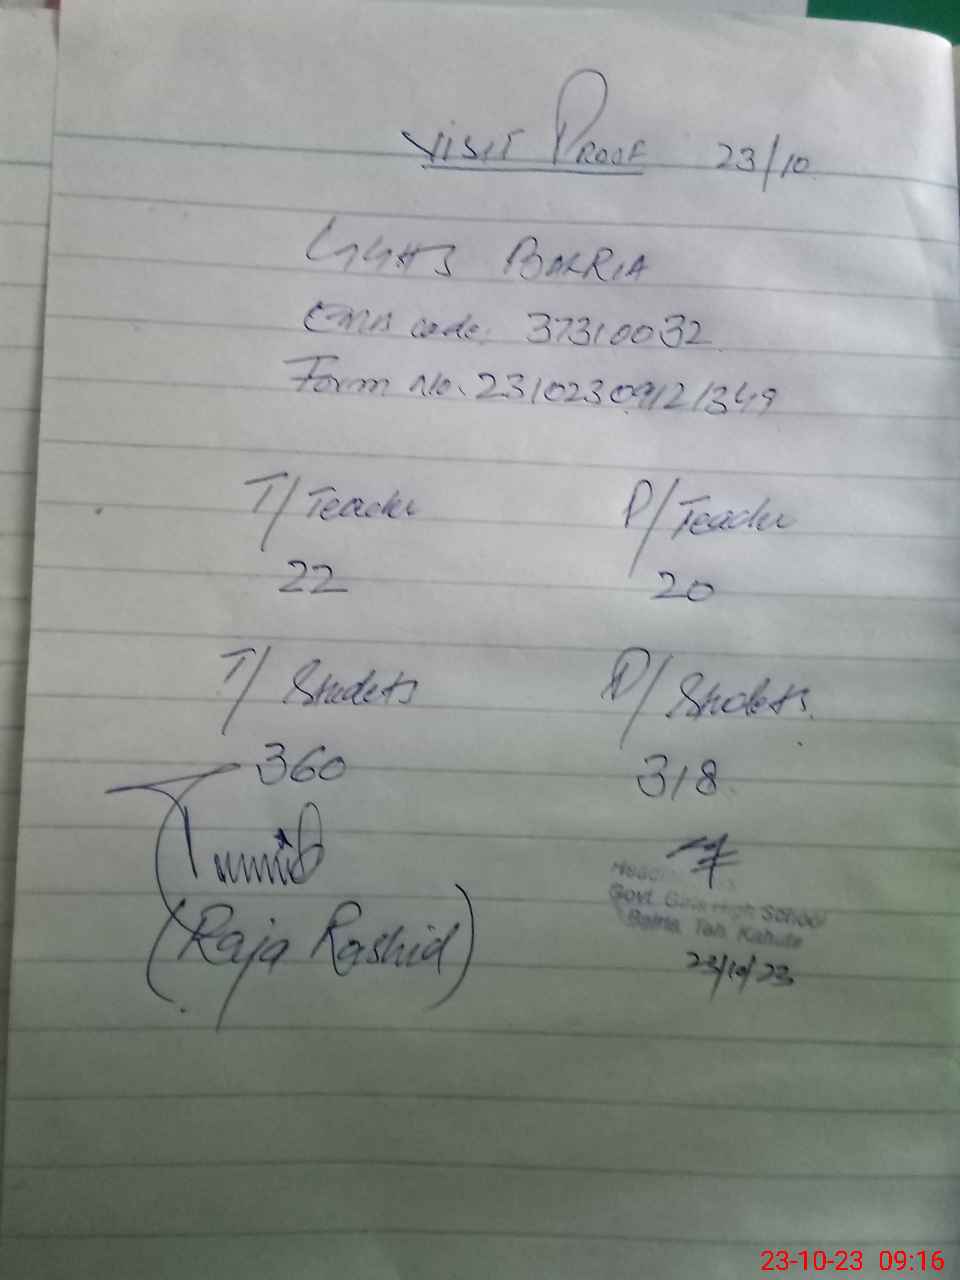 VISIT PROOF 23/10
GGHS BARRIA
EMIS code: 37310032
Form No. 23102309121349
T/Teacher P/Teacher
22 20
T/Studets P/Studets
360 318
(Raja Rashid)
Govt. Girls High School
Barria Teh. Kahuta
23/10/23
23-10-23 09:16